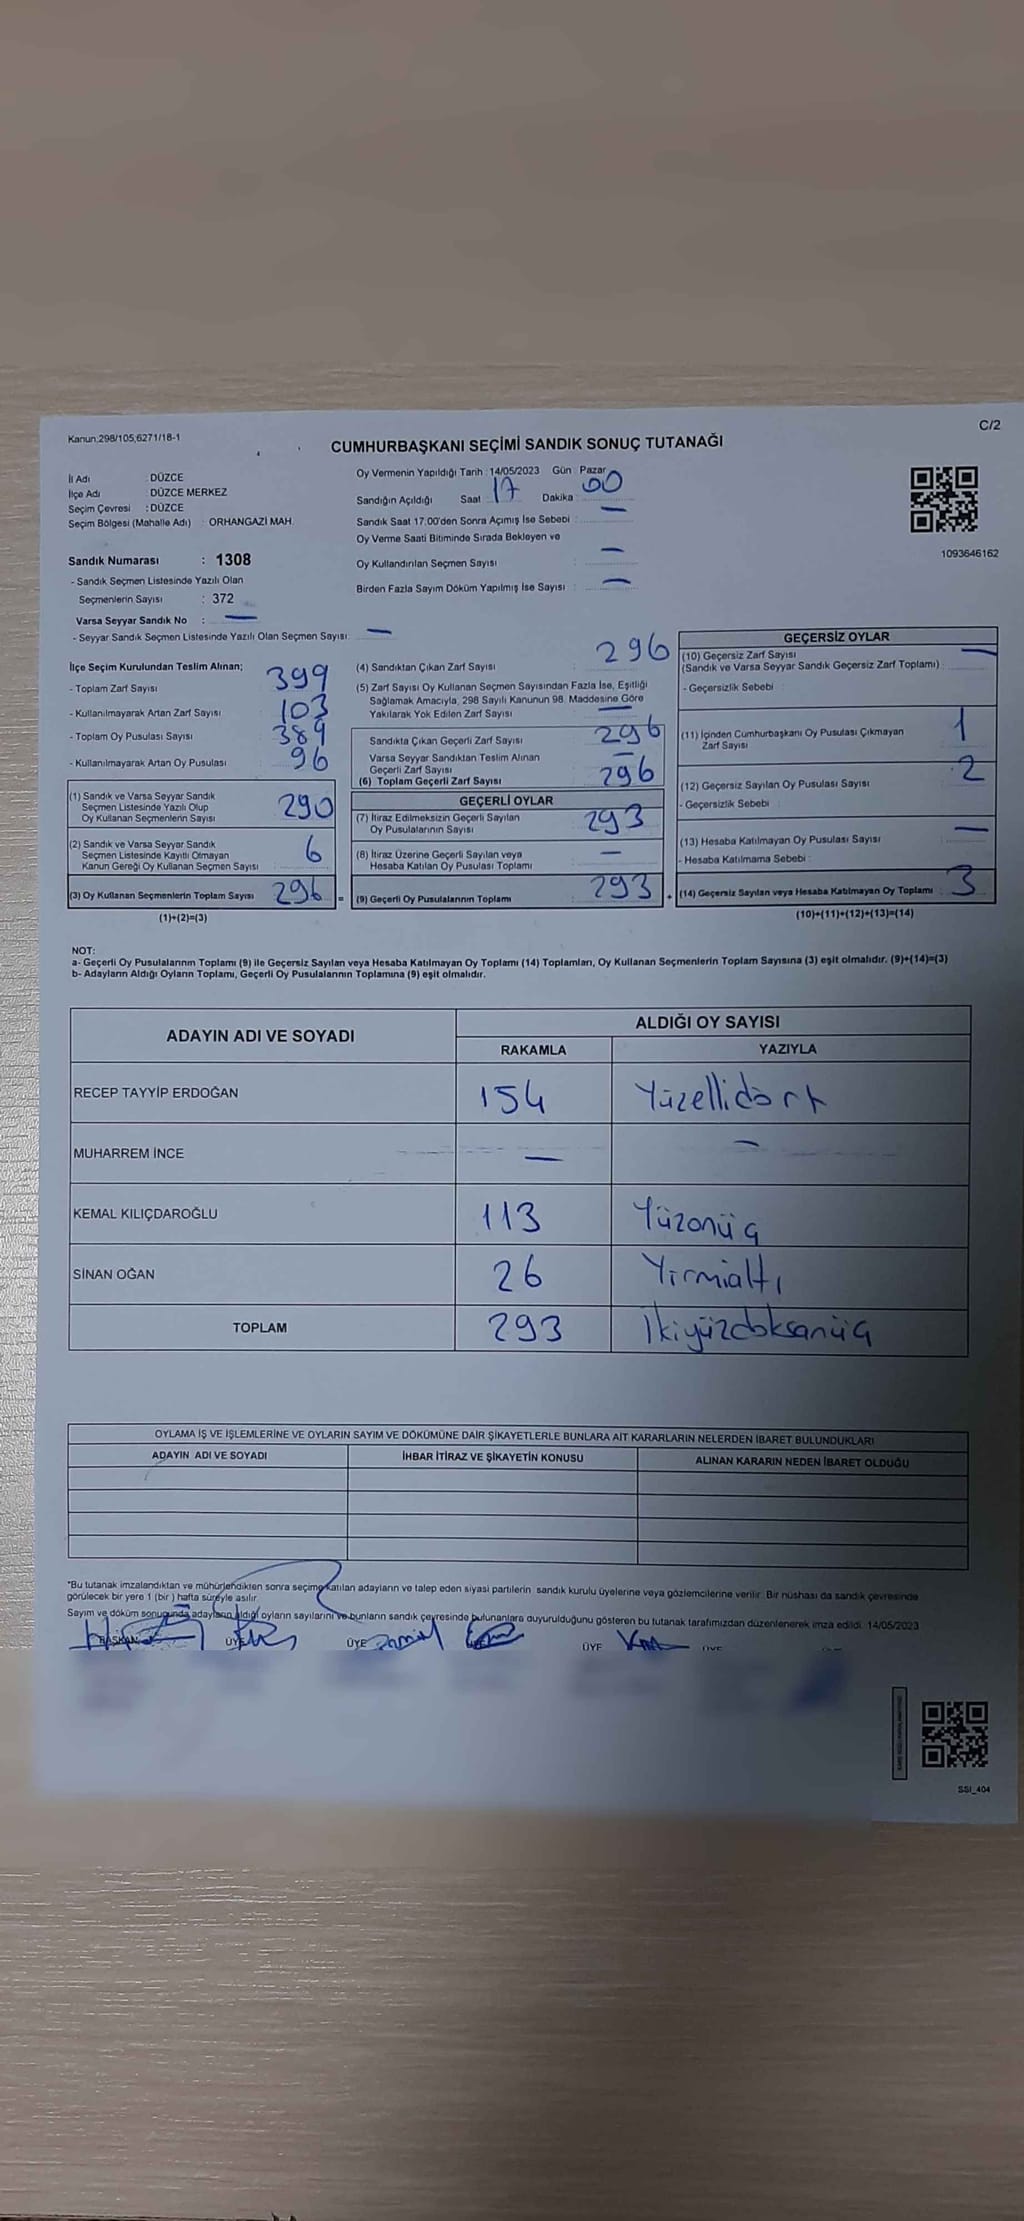 Kanun:298/105,6271/18-1
C/2
CUMHURBAŞKANI SEÇİMİ SANDIK SONUÇ TUTANAĞI
İl Adı : DÜZCE
İlçe Adı : DÜZCE MERKEZ
Seçim Çevresi : DÜZCE
Seçim Bölgesi (Mahalle Adı) : ORHANGAZİ MAH.
Oy Vermenin Yapıldığı Tarih : 14/05/2023 Gün : Pazar
Sandığın Açıldığı Saat : 17 Dakika : 00
Sandık Saat 17.00'den Sonra Açımış İse Sebebi : —
Oy Verme Saati Bitiminde Sırada Bekleyen ve
Oy Kullandırılan Seçmen Sayısı : —
Birden Fazla Sayım Döküm Yapılmış İse Sayısı : —
1093646162
Sandık Numarası : 1308
- Sandık Seçmen Listesinde Yazılı Olan
Seçmenlerin Sayısı : 372
Varsa Seyyar Sandık No : —
- Seyyar Sandık Seçmen Listesinde Yazılı Olan Seçmen Sayısı: —
İlçe Seçim Kurulundan Teslim Alınan;
- Toplam Zarf Sayısı 399
- Kullanılmayarak Artan Zarf Sayısı 103
- Toplam Oy Pusulası Sayısı 389
- Kullanılmayarak Artan Oy Pusulası 96
(1) Sandık ve Varsa Seyyar Sandık
Seçmen Listesinde Yazılı Olup
Oy Kullanan Seçmenlerin Sayısı 290
(2) Sandık ve Varsa Seyyar Sandık
Seçmen Listesinde Kayıtlı Olmayan
Kanun Gereği Oy Kullanan Seçmen Sayısı 6
(3) Oy Kullanan Seçmenlerin Toplam Sayısı 296 =
(1)+(2)=(3)
(4) Sandıktan Çıkan Zarf Sayısı 296
(5) Zarf Sayısı Oy Kullanan Seçmen Sayısından Fazla İse, Eşitliği
Sağlamak Amacıyla, 298 Sayılı Kanunun 98. Maddesine Göre
Yakılarak Yok Edilen Zarf Sayısı —
Sandıkta Çıkan Geçerli Zarf Sayısı 296
Varsa Seyyar Sandıktan Teslim Alınan
Geçerli Zarf Sayısı —
(6) Toplam Geçerli Zarf Sayısı 296
GEÇERLİ OYLAR
(7) İtiraz Edilmeksizin Geçerli Sayılan
Oy Pusulalarının Sayısı 293
(8) İtiraz Üzerine Geçerli Sayılan veya
Hesaba Katılan Oy Pusulası Toplamı —
(9) Geçerli Oy Pusulalarının Toplamı 293 +
GEÇERSİZ OYLAR
(10) Geçersiz Zarf Sayısı —
(Sandık ve Varsa Seyyar Sandık Geçersiz Zarf Toplamı) :
- Geçersizlik Sebebi :
(11) İçinden Cumhurbaşkanı Oy Pusulası Çıkmayan 1
Zarf Sayısı
(12) Geçersiz Sayılan Oy Pusulası Sayısı 2
- Geçersizlik Sebebi :
(13) Hesaba Katılmayan Oy Pusulası Sayısı —
- Hesaba Katılmama Sebebi :
(14) Geçersiz Sayılan veya Hesaba Katılmayan Oy Toplamı : 3
(10)+(11)+(12)+(13)=(14)
NOT:
a- Geçerli Oy Pusulalarının Toplamı (9) ile Geçersiz Sayılan veya Hesaba Katılmayan Oy Toplamı (14) Toplamları, Oy Kullanan Seçmenlerin Toplam Sayısına (3) eşit olmalıdır. (9)+(14)=(3)
b- Adayların Aldığı Oyların Toplamı, Geçerli Oy Pusulalarının Toplamına (9) eşit olmalıdır.
ADAYIN ADI VE SOYADI
ALDIĞI OY SAYISI
RAKAMLA YAZIYLA
RECEP TAYYİP ERDOĞAN 154 Yüzellidört
MUHARREM İNCE — —
KEMAL KILIÇDAROĞLU 113 Yüzonüç
SİNAN OĞAN 26 Yirmialtı
TOPLAM 293 İkiyüzdoksanüç
OYLAMA İŞ VE İŞLEMLERİNE VE OYLARIN SAYIM VE DÖKÜMÜNE DAİR ŞİKAYETLERLE BUNLARA AİT KARARLARIN NELERDEN İBARET BULUNDUKLARI
ADAYIN ADI VE SOYADI İHBAR İTİRAZ VE ŞİKAYETİN KONUSU ALINAN KARARIN NEDEN İBARET OLDUĞU
*Bu tutanak imzalandıktan ve mühürlendikten sonra seçime katılan adayların ve talep eden siyasi partilerin sandık kurulu üyelerine veya gözlemcilerine verilir. Bir nüshası da sandık çevresinde
görülecek bir yere 1 (bir) hafta süreyle asılır.
Sayım ve döküm sonucunda adayların aldığı oyların sayılarını ve bunların sandık çevresinde bulunanlara duyurulduğunu gösteren bu tutanak tarafımızdan düzenlenerek imza edildi. 14/05/2023
BAŞKAN ÜYE ÜYE ÜYE ÜYE ÜYE
SSI_404